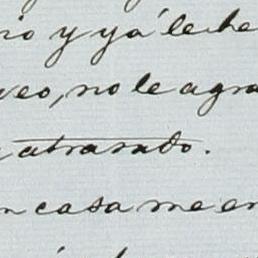 io y ya le he
veo, no le agra
atrasado.
n casa me en